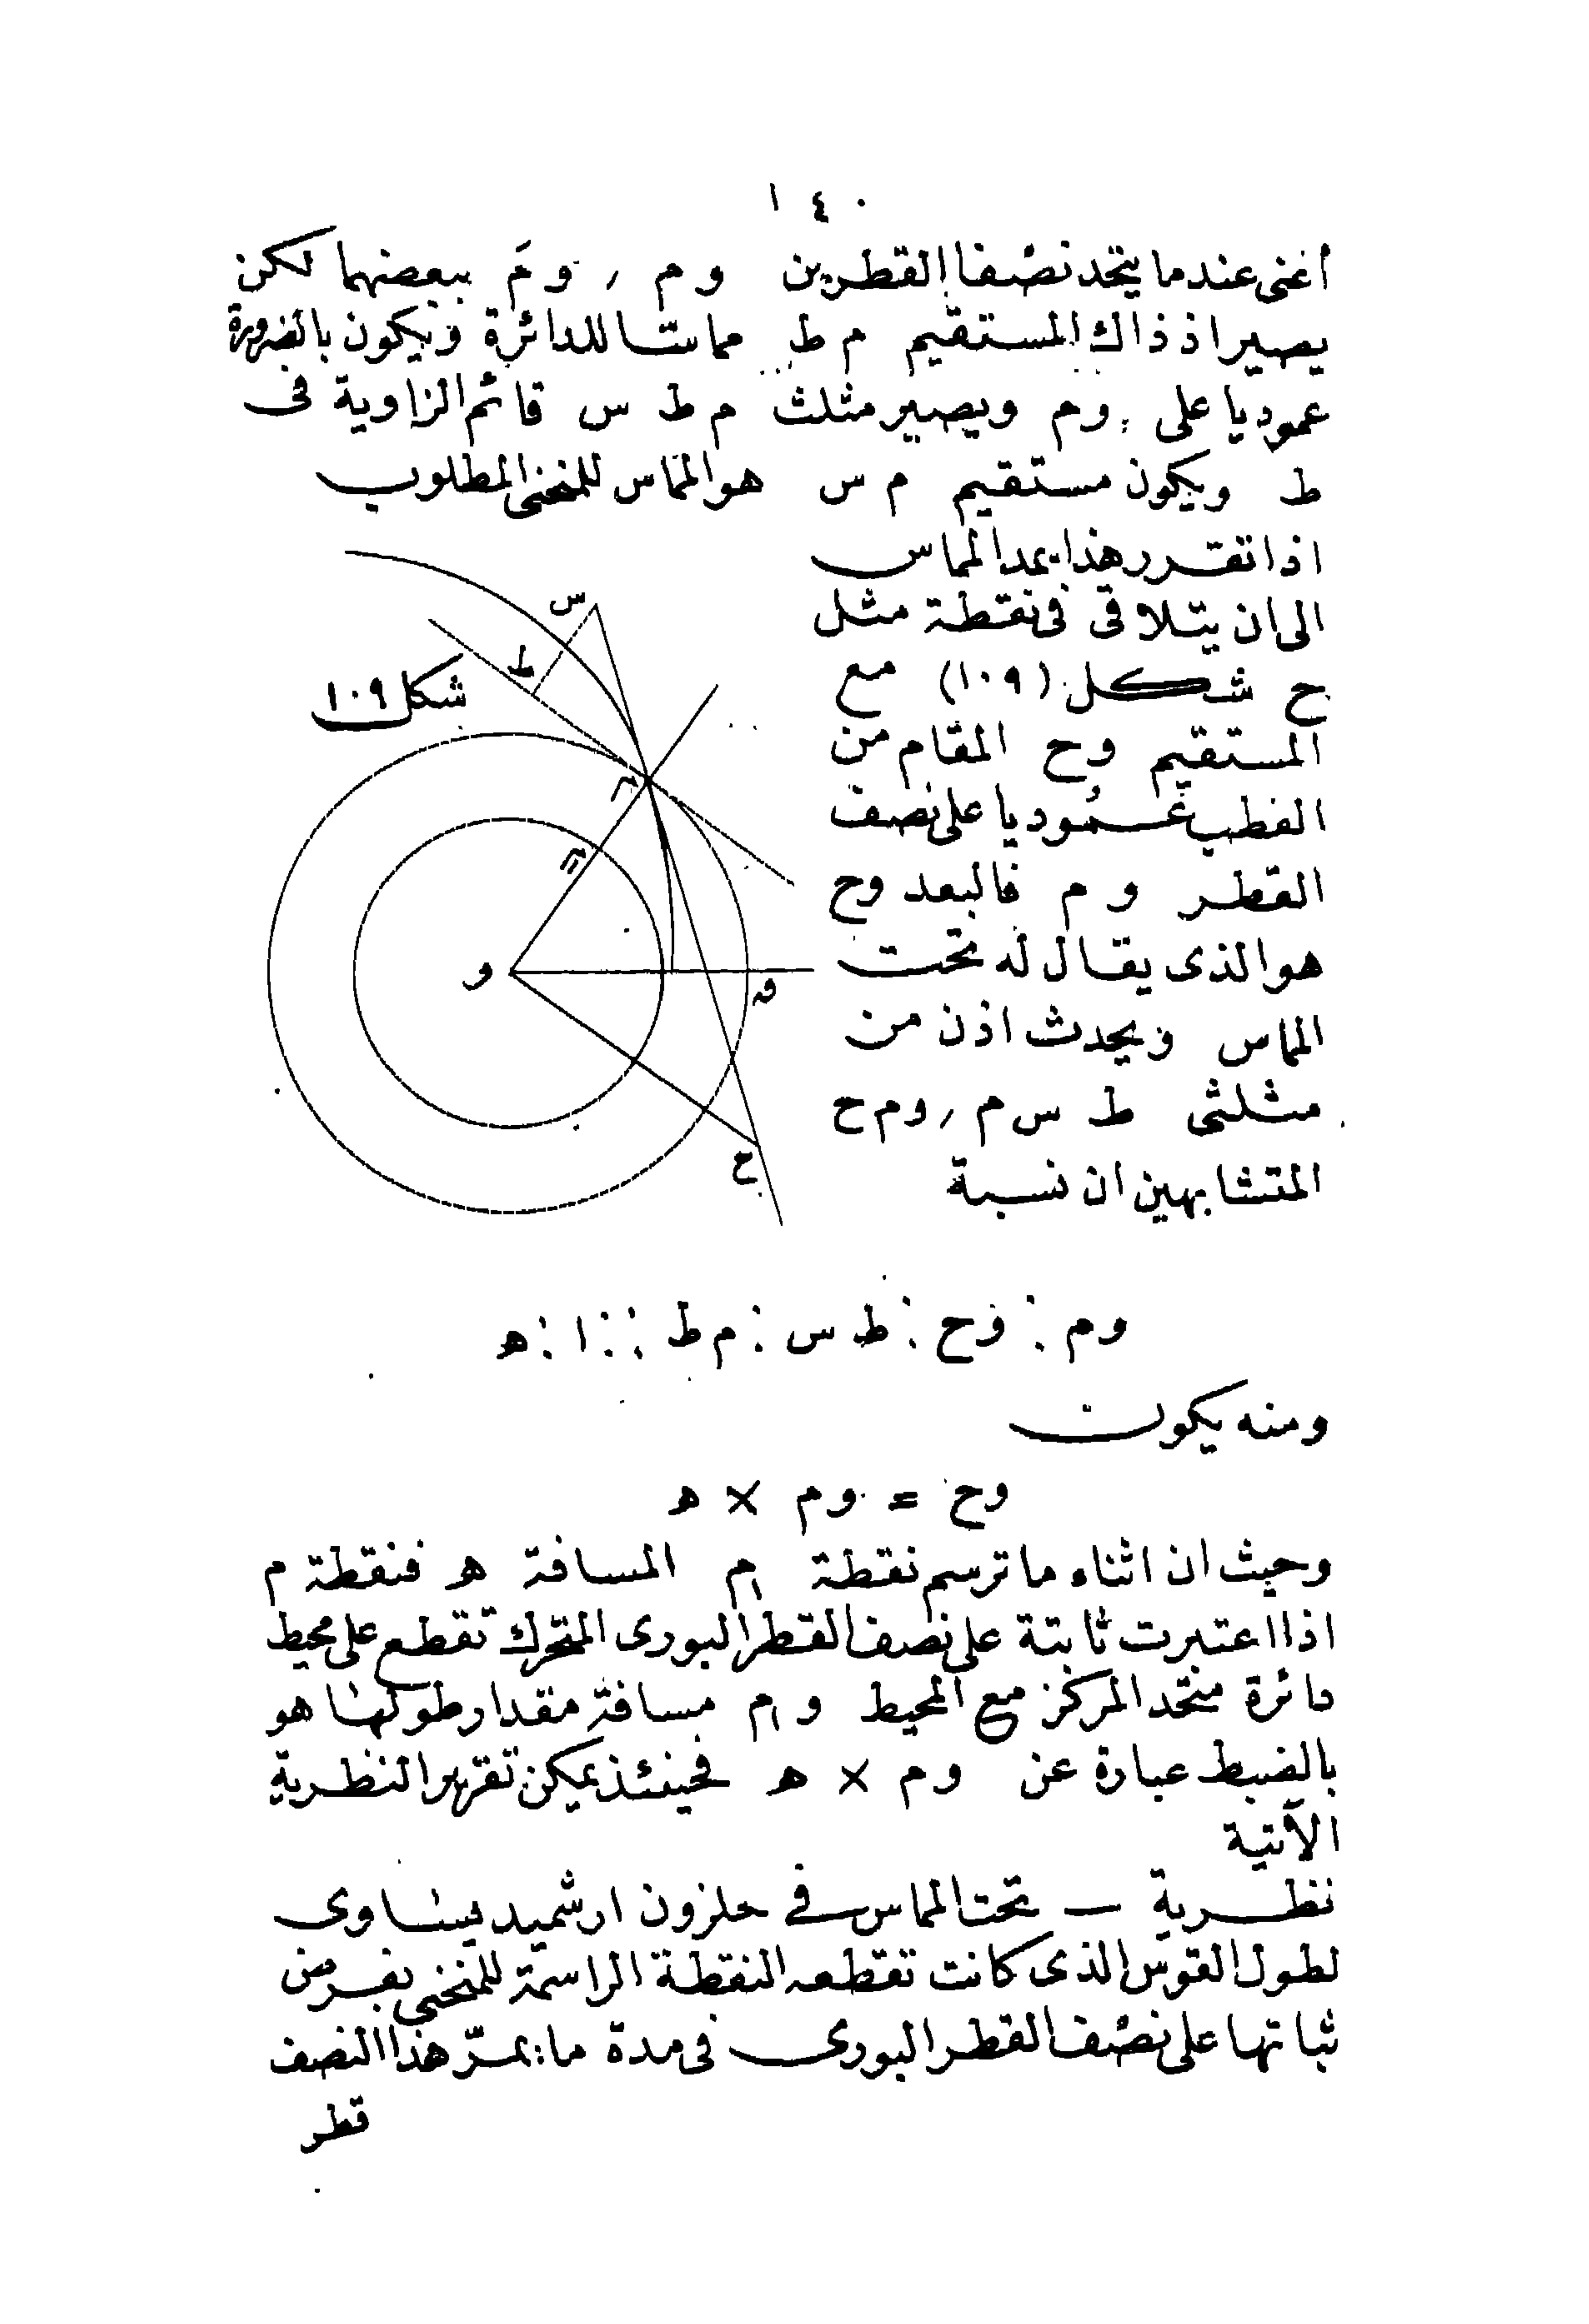 ١٤٠
أعنى عندما يتحد نصفا القطرين و م ، و مَ ببعضهما لكن
يصير اذ ذاك المستقيم م ط مماسا للدائرة ويكون بالضرورة
عموديا على و م ويصير مثلث م ط س قائم الزاوية فى
ط ويكون مستقيم م س هو المماس للمنحنى المطلوب
اذا تقرر هذا يمد المماس
الى ان يتلاقى فى نقطة مثل
ح شكل (١٠٩) مع
المستقيم وح المقام من
القطب عموديا على نصف
القطر و م فالبعد وح
هو الذى يقال له تحت
المماس ويحدث اذن من
مثلثى ط س م ، و م ح
المتشابهين ان نسبة
س
ط
شكل ١٠٩
م
و
ح
وم : وح : ط س : م ط :: ١ : ه
ومنه يكون
وح = وم × ه
وحيث ان اثناء ما ترسم نقطة م١ المسافة ه فنقطة م
اذا اعتبرت ثابتة على نصف القطر البورى المتحرك تقطع على محيط
دائرة متحد المركز مع المحيط و م١ مسافة مقدار طولها هو
بالضبط عبارة عن وم × ه فحينئذ يمكن تقرير النظرية
الآتية
نظرية — تحت المماس فى حلزون ارشميد يساوى
لطول القوس الذى كانت تقطعه النقطة الراسمة للمنحنى بفرض
ثباتها على نصف القطر البورى فى مدة ما يمرّ هذا النصف
قطر